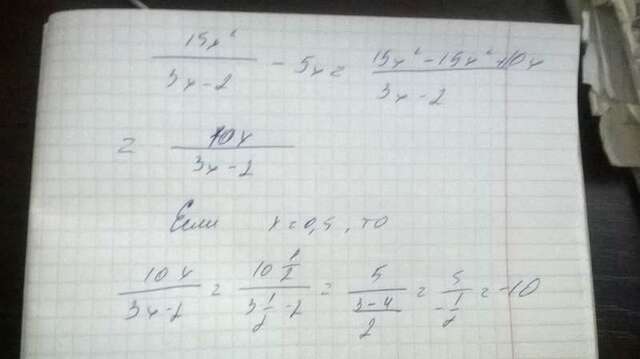 15x² / 3x-2 - 5x = 15x² - 15x² + 10x / 3x-2
= 10x / 3x-2
Если x = 0,5, то
10x / 3x-2 = 10 1/2 / 3 1/2 - 2 = 5 / 3-4/2 = 5 / -1/2 = -10